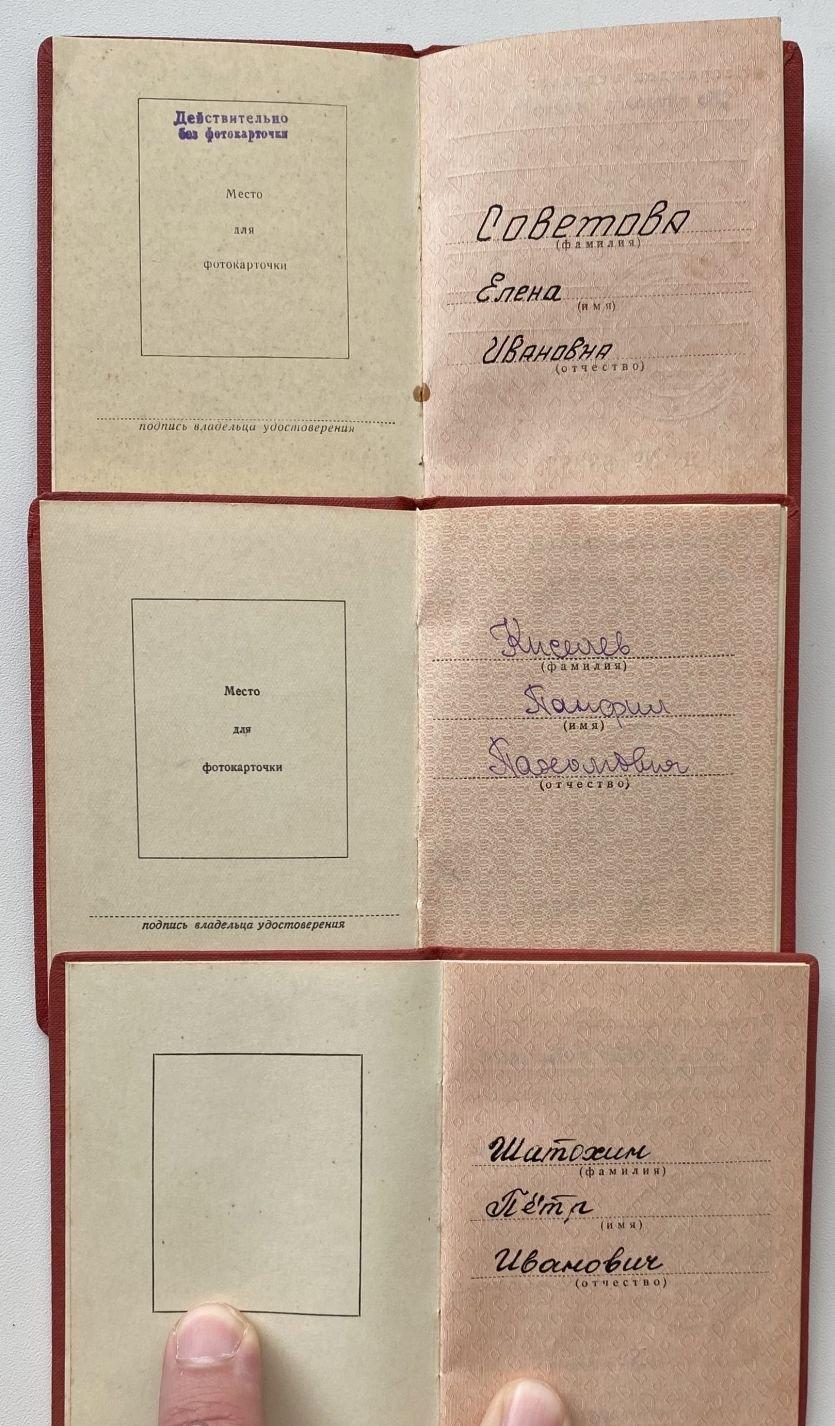 Действительно
без фотокарточки
Место
для
фотокарточки
подпись владельца удостоверения
Советова
(фамилия)
Елена
(имя)
Ивановна
(отчество)
Место
для
фотокарточки
подпись владельца удостоверения
Киселев
(фамилия)
Панфил
(имя)
Пахомович
(отчество)
Шатохин
(фамилия)
Пётр
(имя)
Иванович
(отчество)